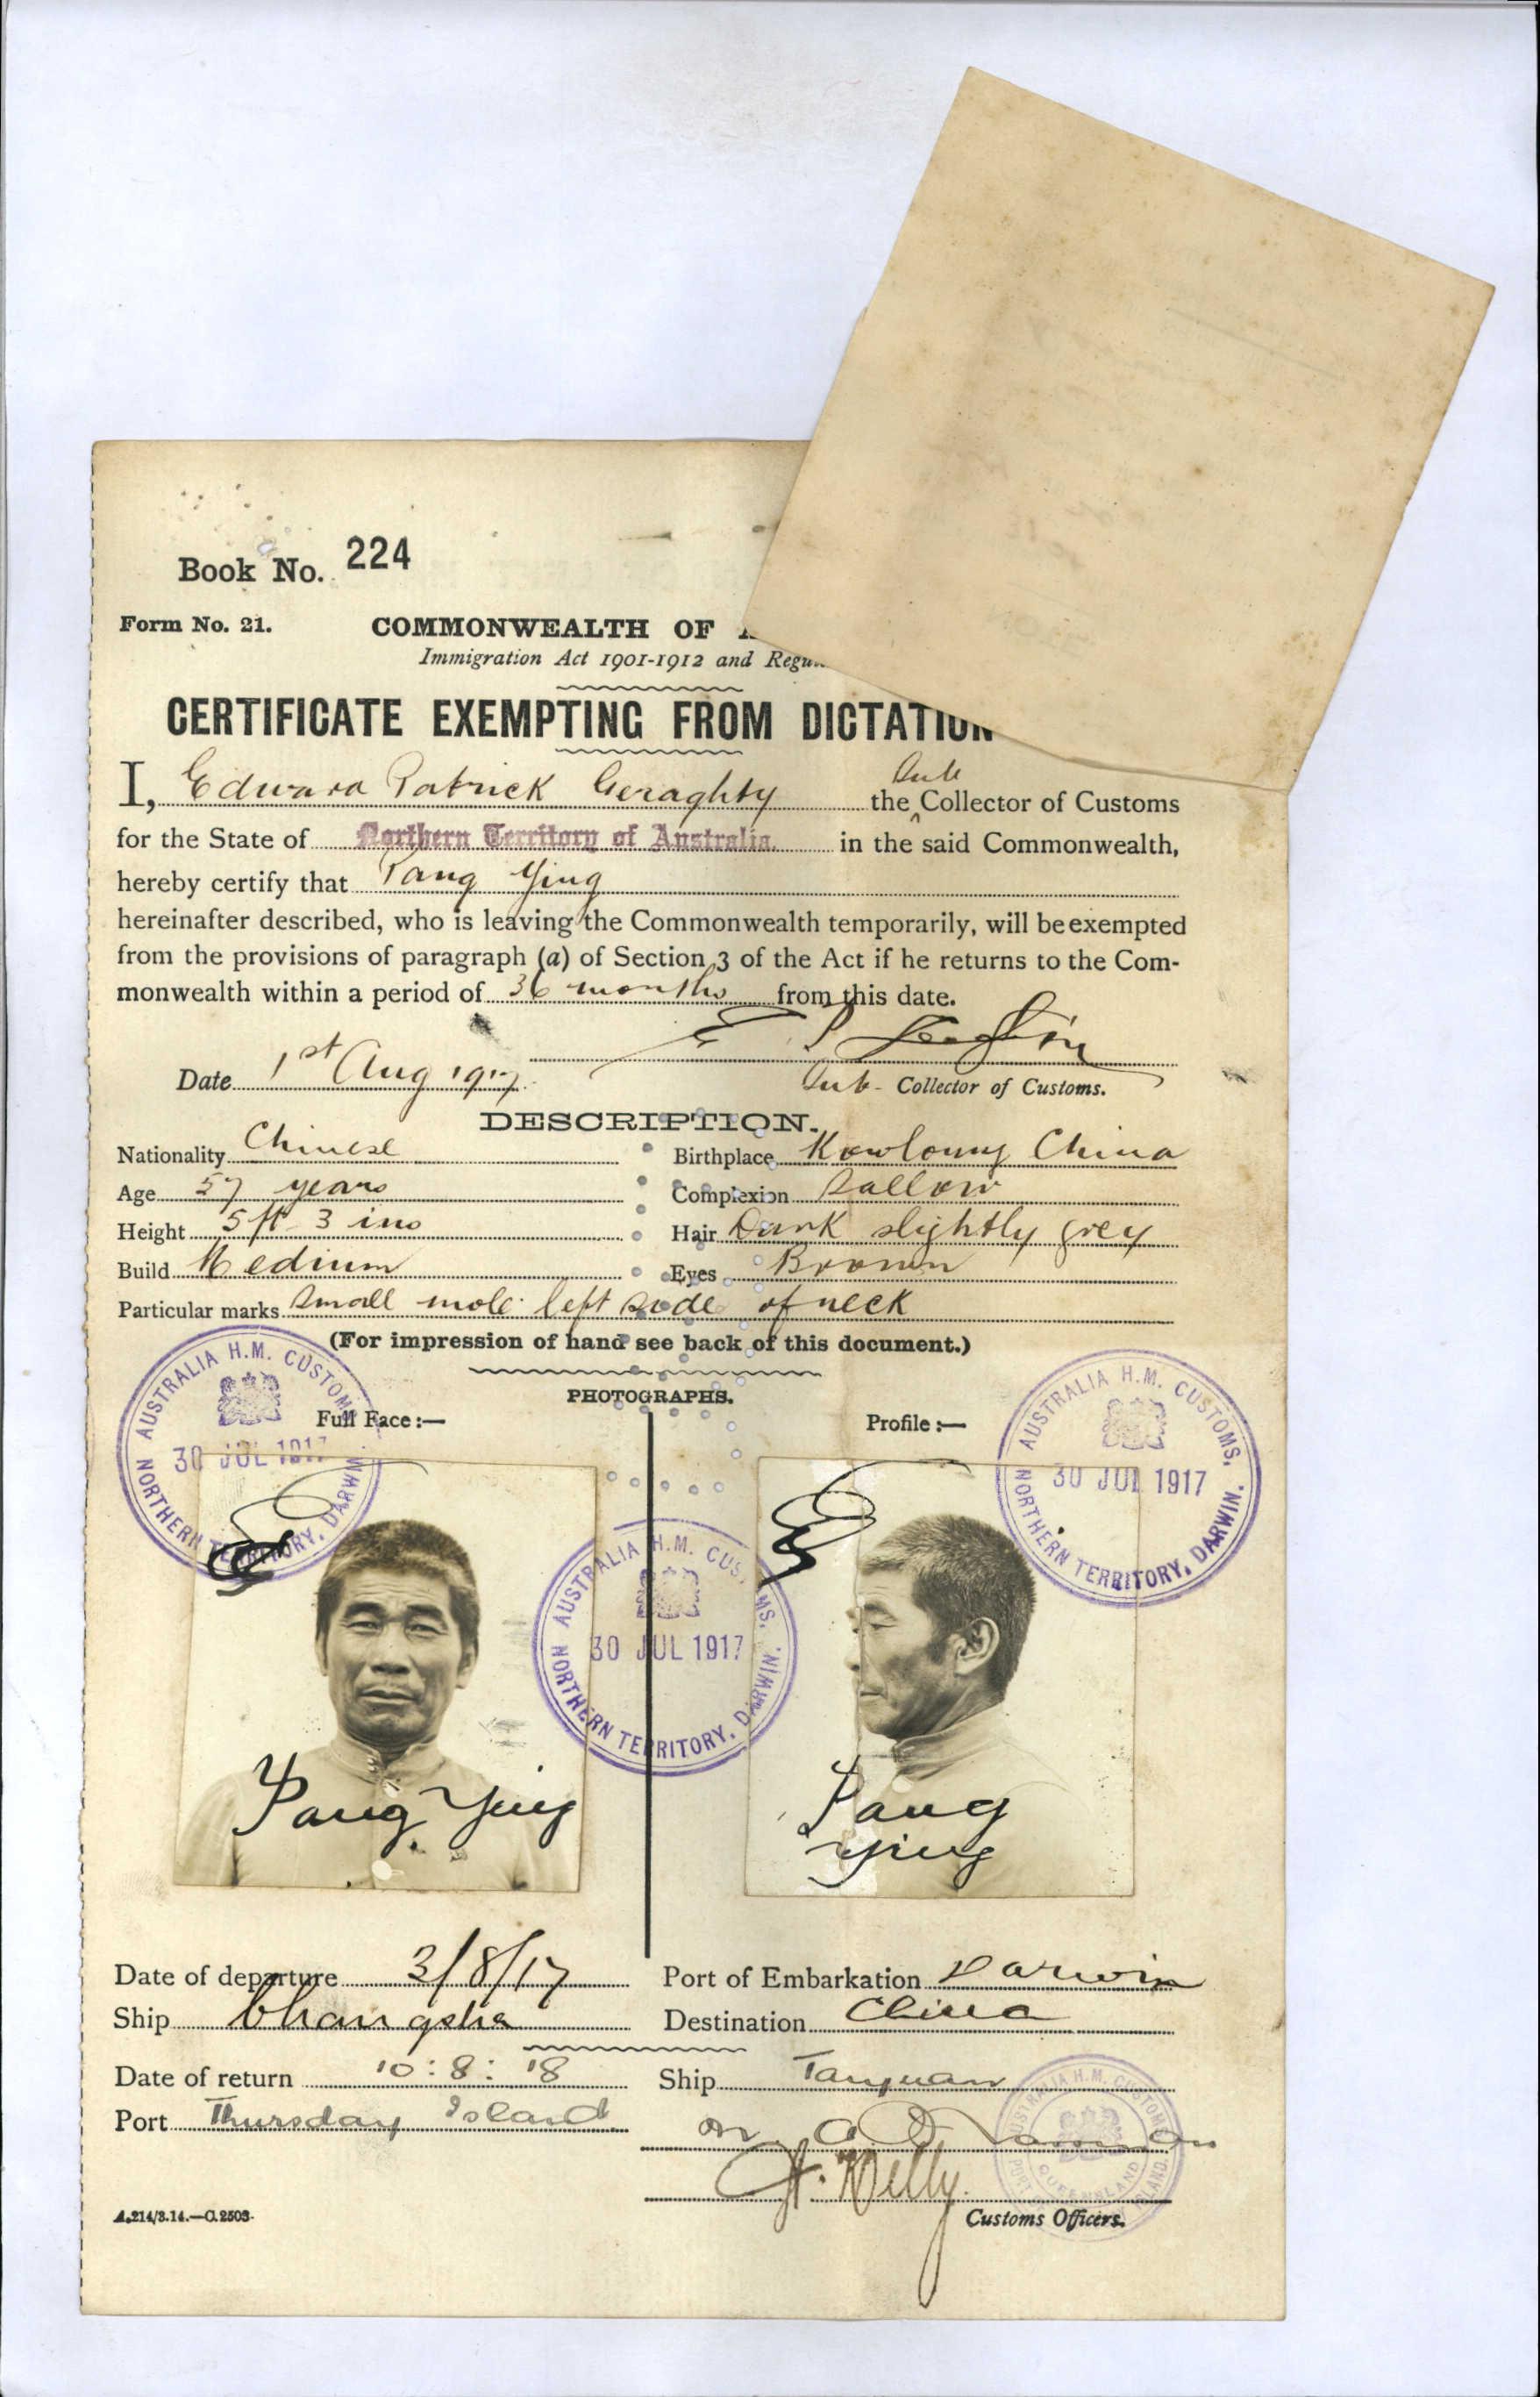 Book No. 224
Form No. 21.
COMMONWEALTH OF
Immigration Act 1901-1912 and Regu
CERTIFICATE EXEMPTING FROM DICTATION
I, Edward Patrick Geraghty the Sub Collector of Customs
for the State of Northern Territory of Australia. in the said Commonwealth,
hereby certify that Pang Ying
hereinafter described, who is leaving the Commonwealth temporarily, will be exempted
from the provisions of paragraph (a) of Section 3 of the Act if he returns to the Com-
monwealth within a period of 36 months from this date.
Date 1st Aug 1917
Sub- Collector of Customs.
DESCRIPTION.
Nationality Chinese Birthplace Kowloung China
Age 57 years Complexion Sallow
Height 5 ft 3 ins Hair Dark slightly grey
Build Medium Eyes Brown
Particular marks Small mole left side of neck
(For impression of hand see back of this document.)
PHOTOGRAPHS.
Full Face:— Profile:—
AUSTRALIA H.M. CUSTOMS, 30 JUL 1917 NORTHERN TERRITORY, DARWIN.
AUSTRALIA H.M. CUSTOMS, 30 JUL 1917 NORTHERN TERRITORY, DARWIN.
AUSTRALIA H.M. CUSTOMS, 30 JUL 1917 NORTHERN TERRITORY, DARWIN.
Pang Ying
Pang
Ying
Date of departure 3/8/17 Port of Embarkation Darwin
Ship Changsha Destination China
Date of return 10:8:18 Ship Taiyuan
Port Thursday Island
Customs Officers.
A.214/3.14.—C.2503.